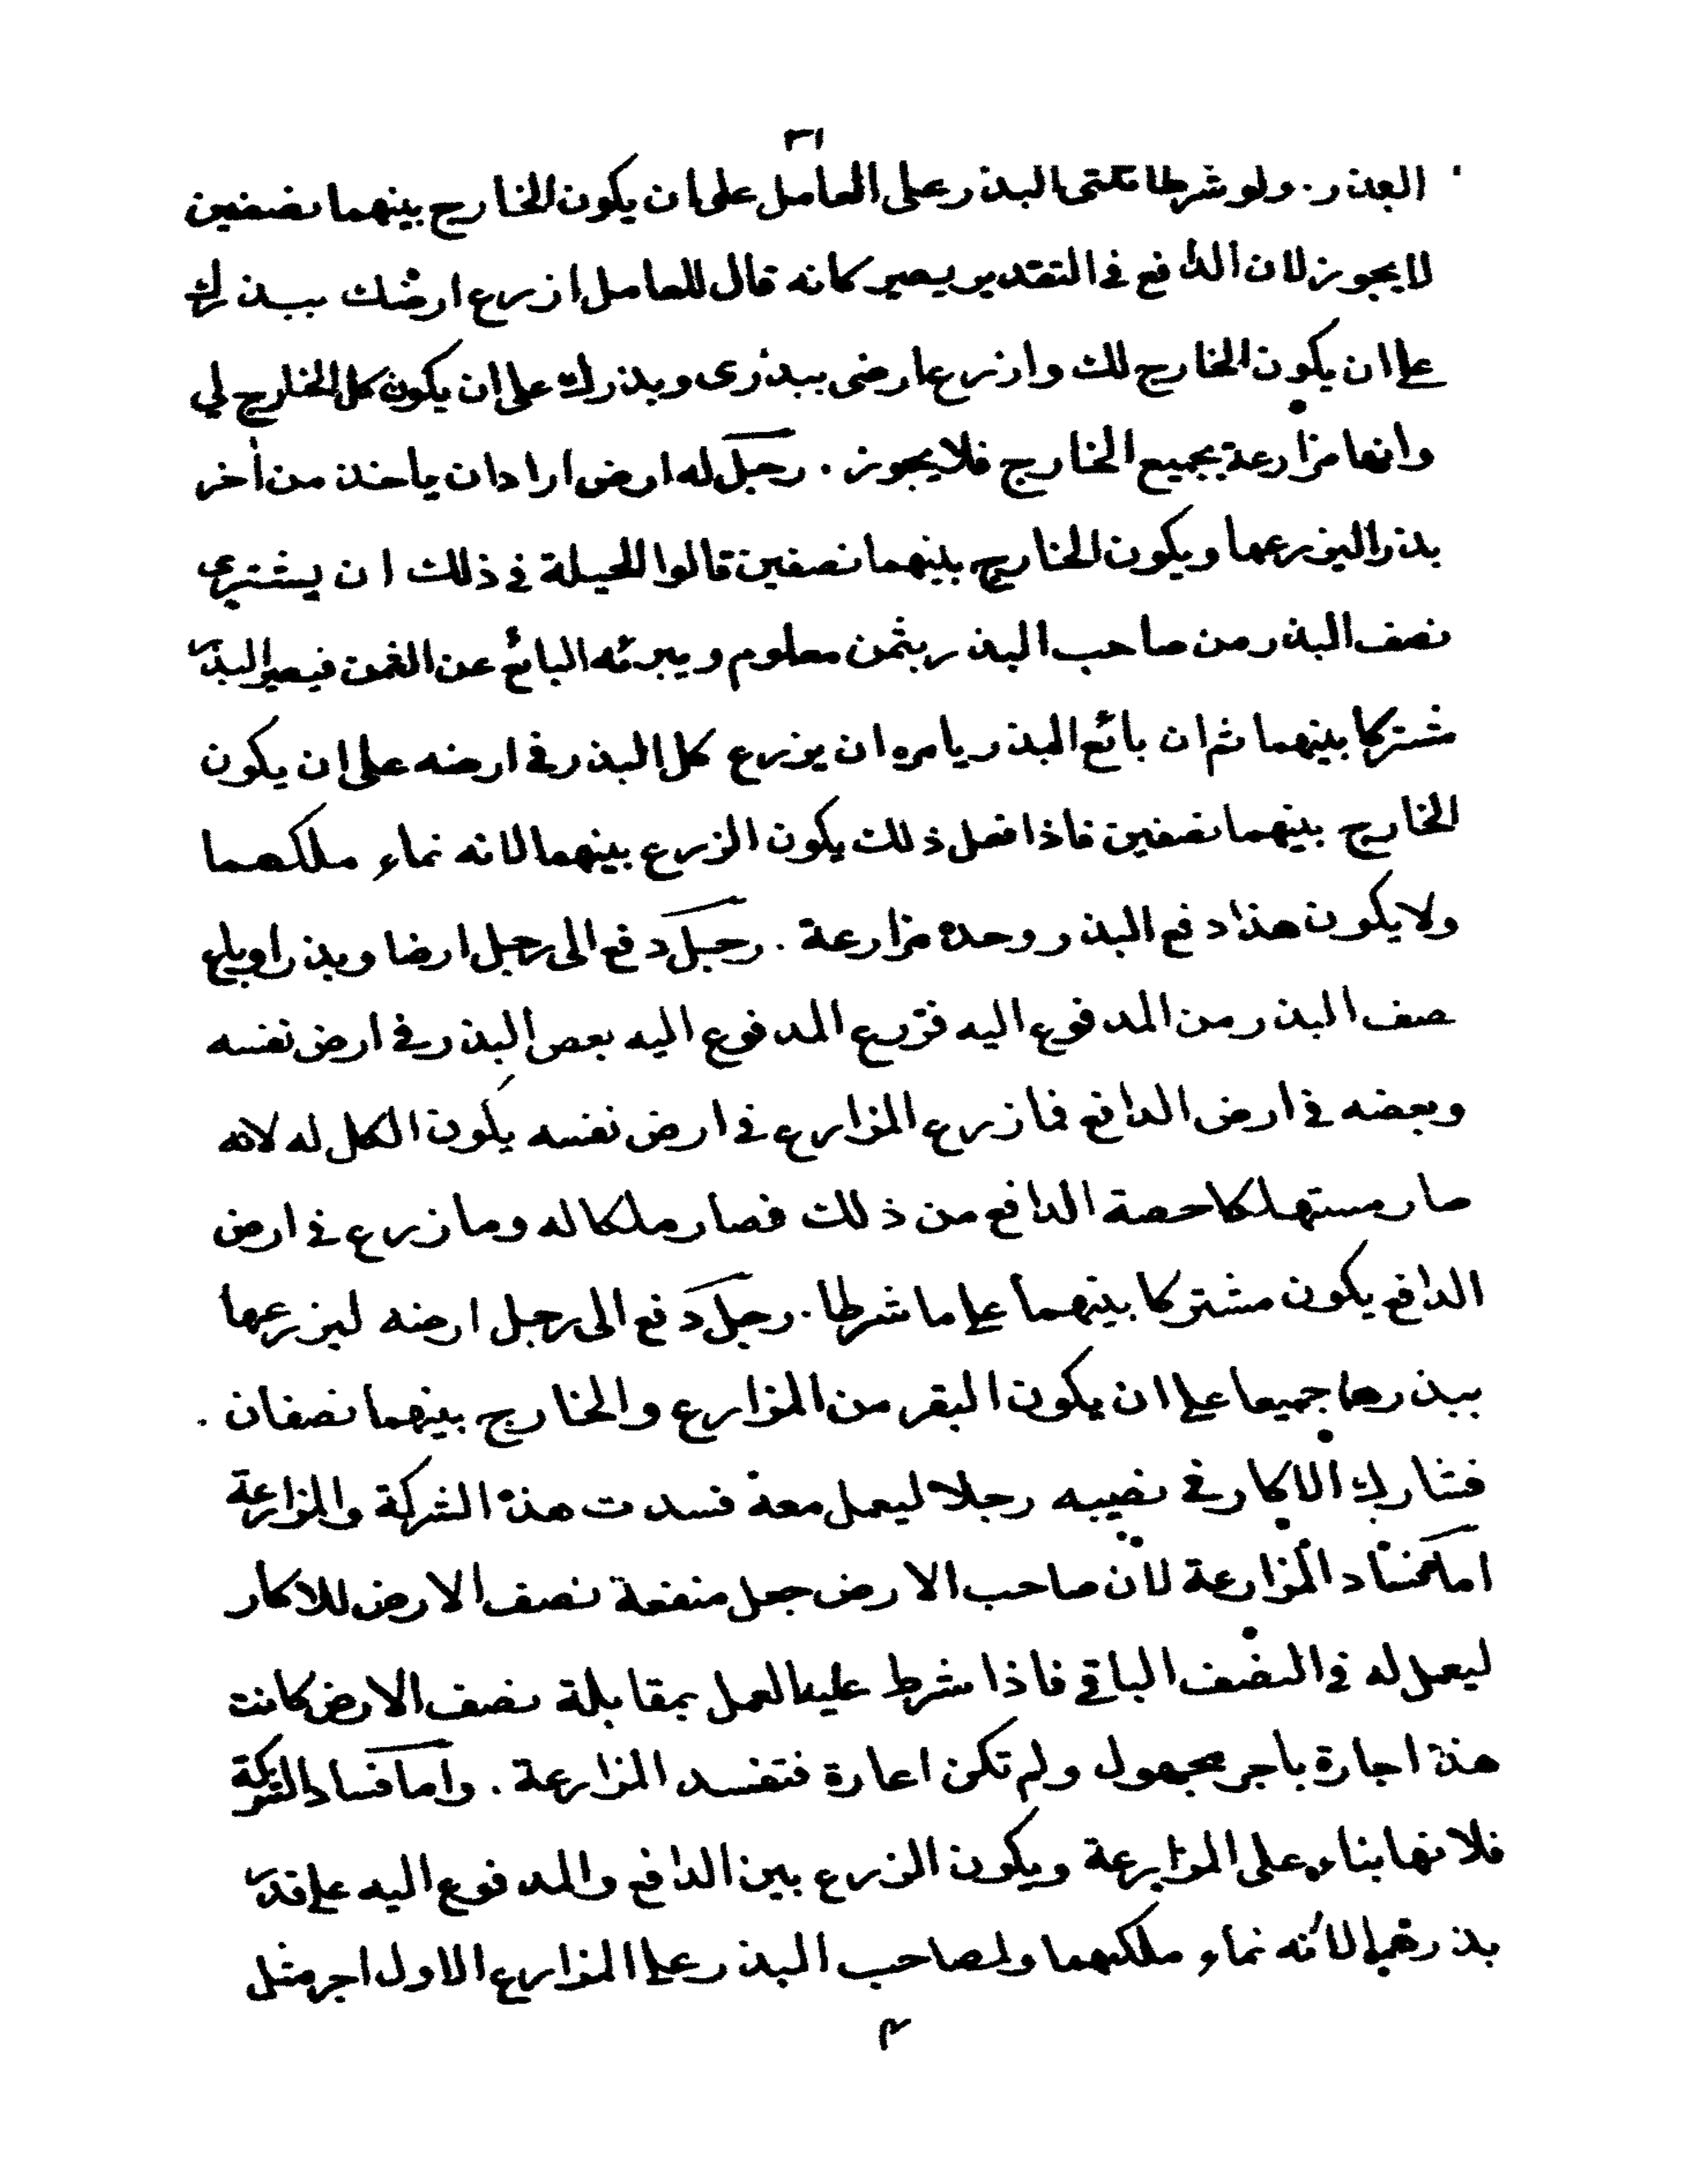 البذر. ولو شرطا ثلثى البذر على العامل على ان يكون الخارج بينهما نصفين
لا يجوز لان الدافع فى التقدير يصير كانه قال للعامل ازرع ارضك ببذرك
على ان يكون الخارج لك وازرع ارضى ببذرى وبذرك على ان يكون كل الخارج لي
وانها مزارعة بجميع الخارج فلا يجوز . رجل له ارض اراد ان ياخذ من أخر
بذرا ليزرعها ويكون الخارج بينهما نصفين قالوا الحيلة في ذلك ان يشترى
نصف البذر من صاحب البذر بثمن معلوم ويبرئه البائع عن الثمن فيصير البذر
مشتركا بينهما ثم ان بائع البذر يامره ان يزرع كل البذر في ارضه على ان يكون
الخارج بينهما نصفين فاذا فعل ذلك يكون الزرع بينهما لانه نماء ملكهما
ولا يكون هذا دفع البذر وحده مزارعة . رجل دفع الى رجل ارضا وبذرا
صف البذر من المدفوع اليه فزرع المدفوع اليه بعض البذر في ارض نفسه
وبعضه في ارض الدافع فما زرع المزارع في ارض نفسه يكون الكل له لانه
صار مستهلكا حصة الدافع من ذلك فصار ملكا له وما زرع في ارض
الدافع يكون مشتركا بينهما على ما شرطا . رجل دفع الى رجل ارضه ليزرعها
ببذرهما جميعا على ان يكون البقر من المزارع والخارج بينهما نصفان .
فشارك الاكار في نصيبه رجلا ليعمل معه فسدت هذه الشركة والمزارعة
اما فساد المزارعة لان صاحب الارض جعل منفعة نصف الارض للاكار
ليعمل له في النصف الباقي فاذا شرط عليه العمل بمقابلة نصف الارض كانت
هذه اجارة باجر مجهول ولم تكن اعارة فتفسد المزارعة . واما فساد الشركة
فلانها بناء على المزارعة ويكون الزرع بين الدافع والمدفوع اليه على قدر
بذرهما لأنه نماء ملكهما ولصاحب البذر على المزارع الاول اجر مثل